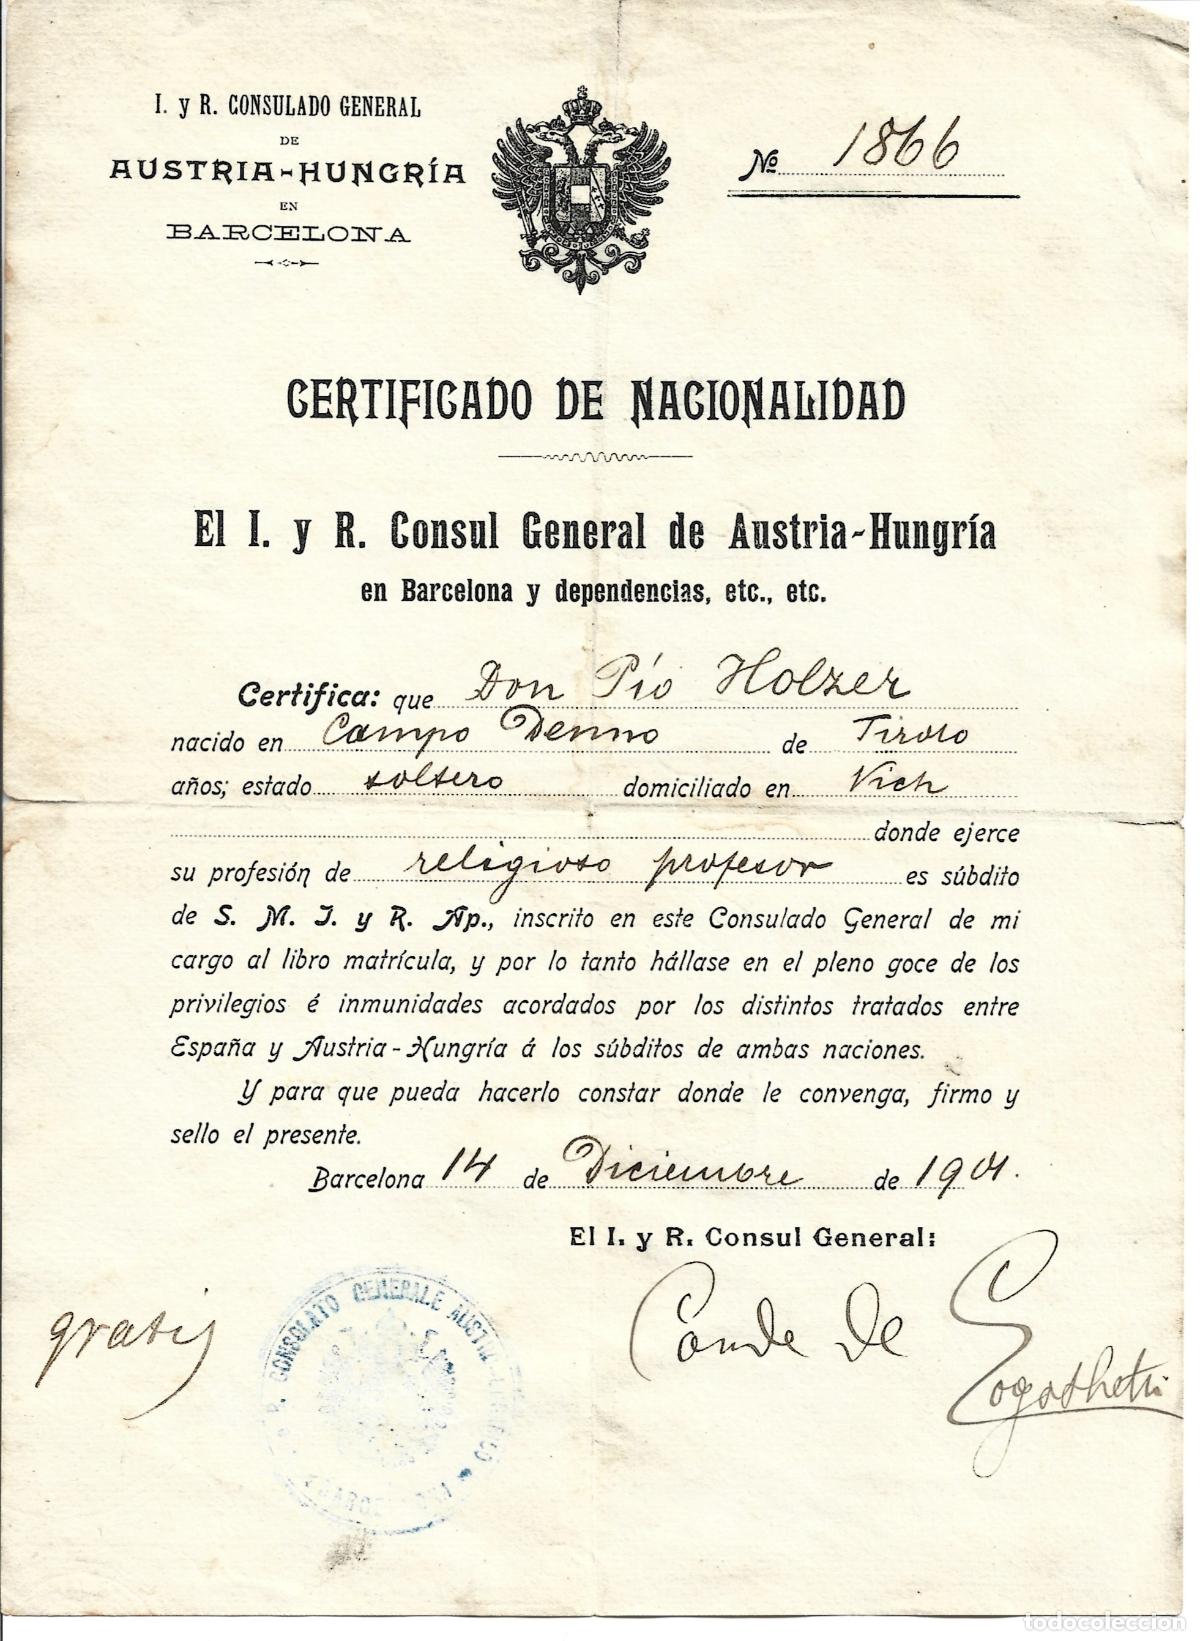 I. y R. CONSULADO GENERAL
DE
AUSTRIA-HUNGRÍA
EN
BARCELONA
No 1866
CERTIFICADO DE NACIONALIDAD
El I. y R. Consul General de Austria-Hungría
en Barcelona y dependencias, etc., etc.
Certifica: que Don Pío Holzer
nacido en Campo Denno de Tirolo
años; estado soltero domiciliado en Vich
donde ejerce
su profesión de religioso profesor es súbdito
de S. M. I. y R. Ap., inscrito en este Consulado General de mi
cargo al libro matrícula, y por lo tanto hállase en el pleno goce de los
privilegios é inmunidades acordados por los distintos tratados entre
España y Austria-Hungría á los súbditos de ambas naciones.
Y para que pueda hacerlo constar donde le convenga, firmo y
sello el presente.
Barcelona 14 de Diciembre de 1901.
El I. y R. Consul General:
gratis
Conde de
R. CONSOLATO GENERALE AUSTRO-UNGARICO
todocoleccion